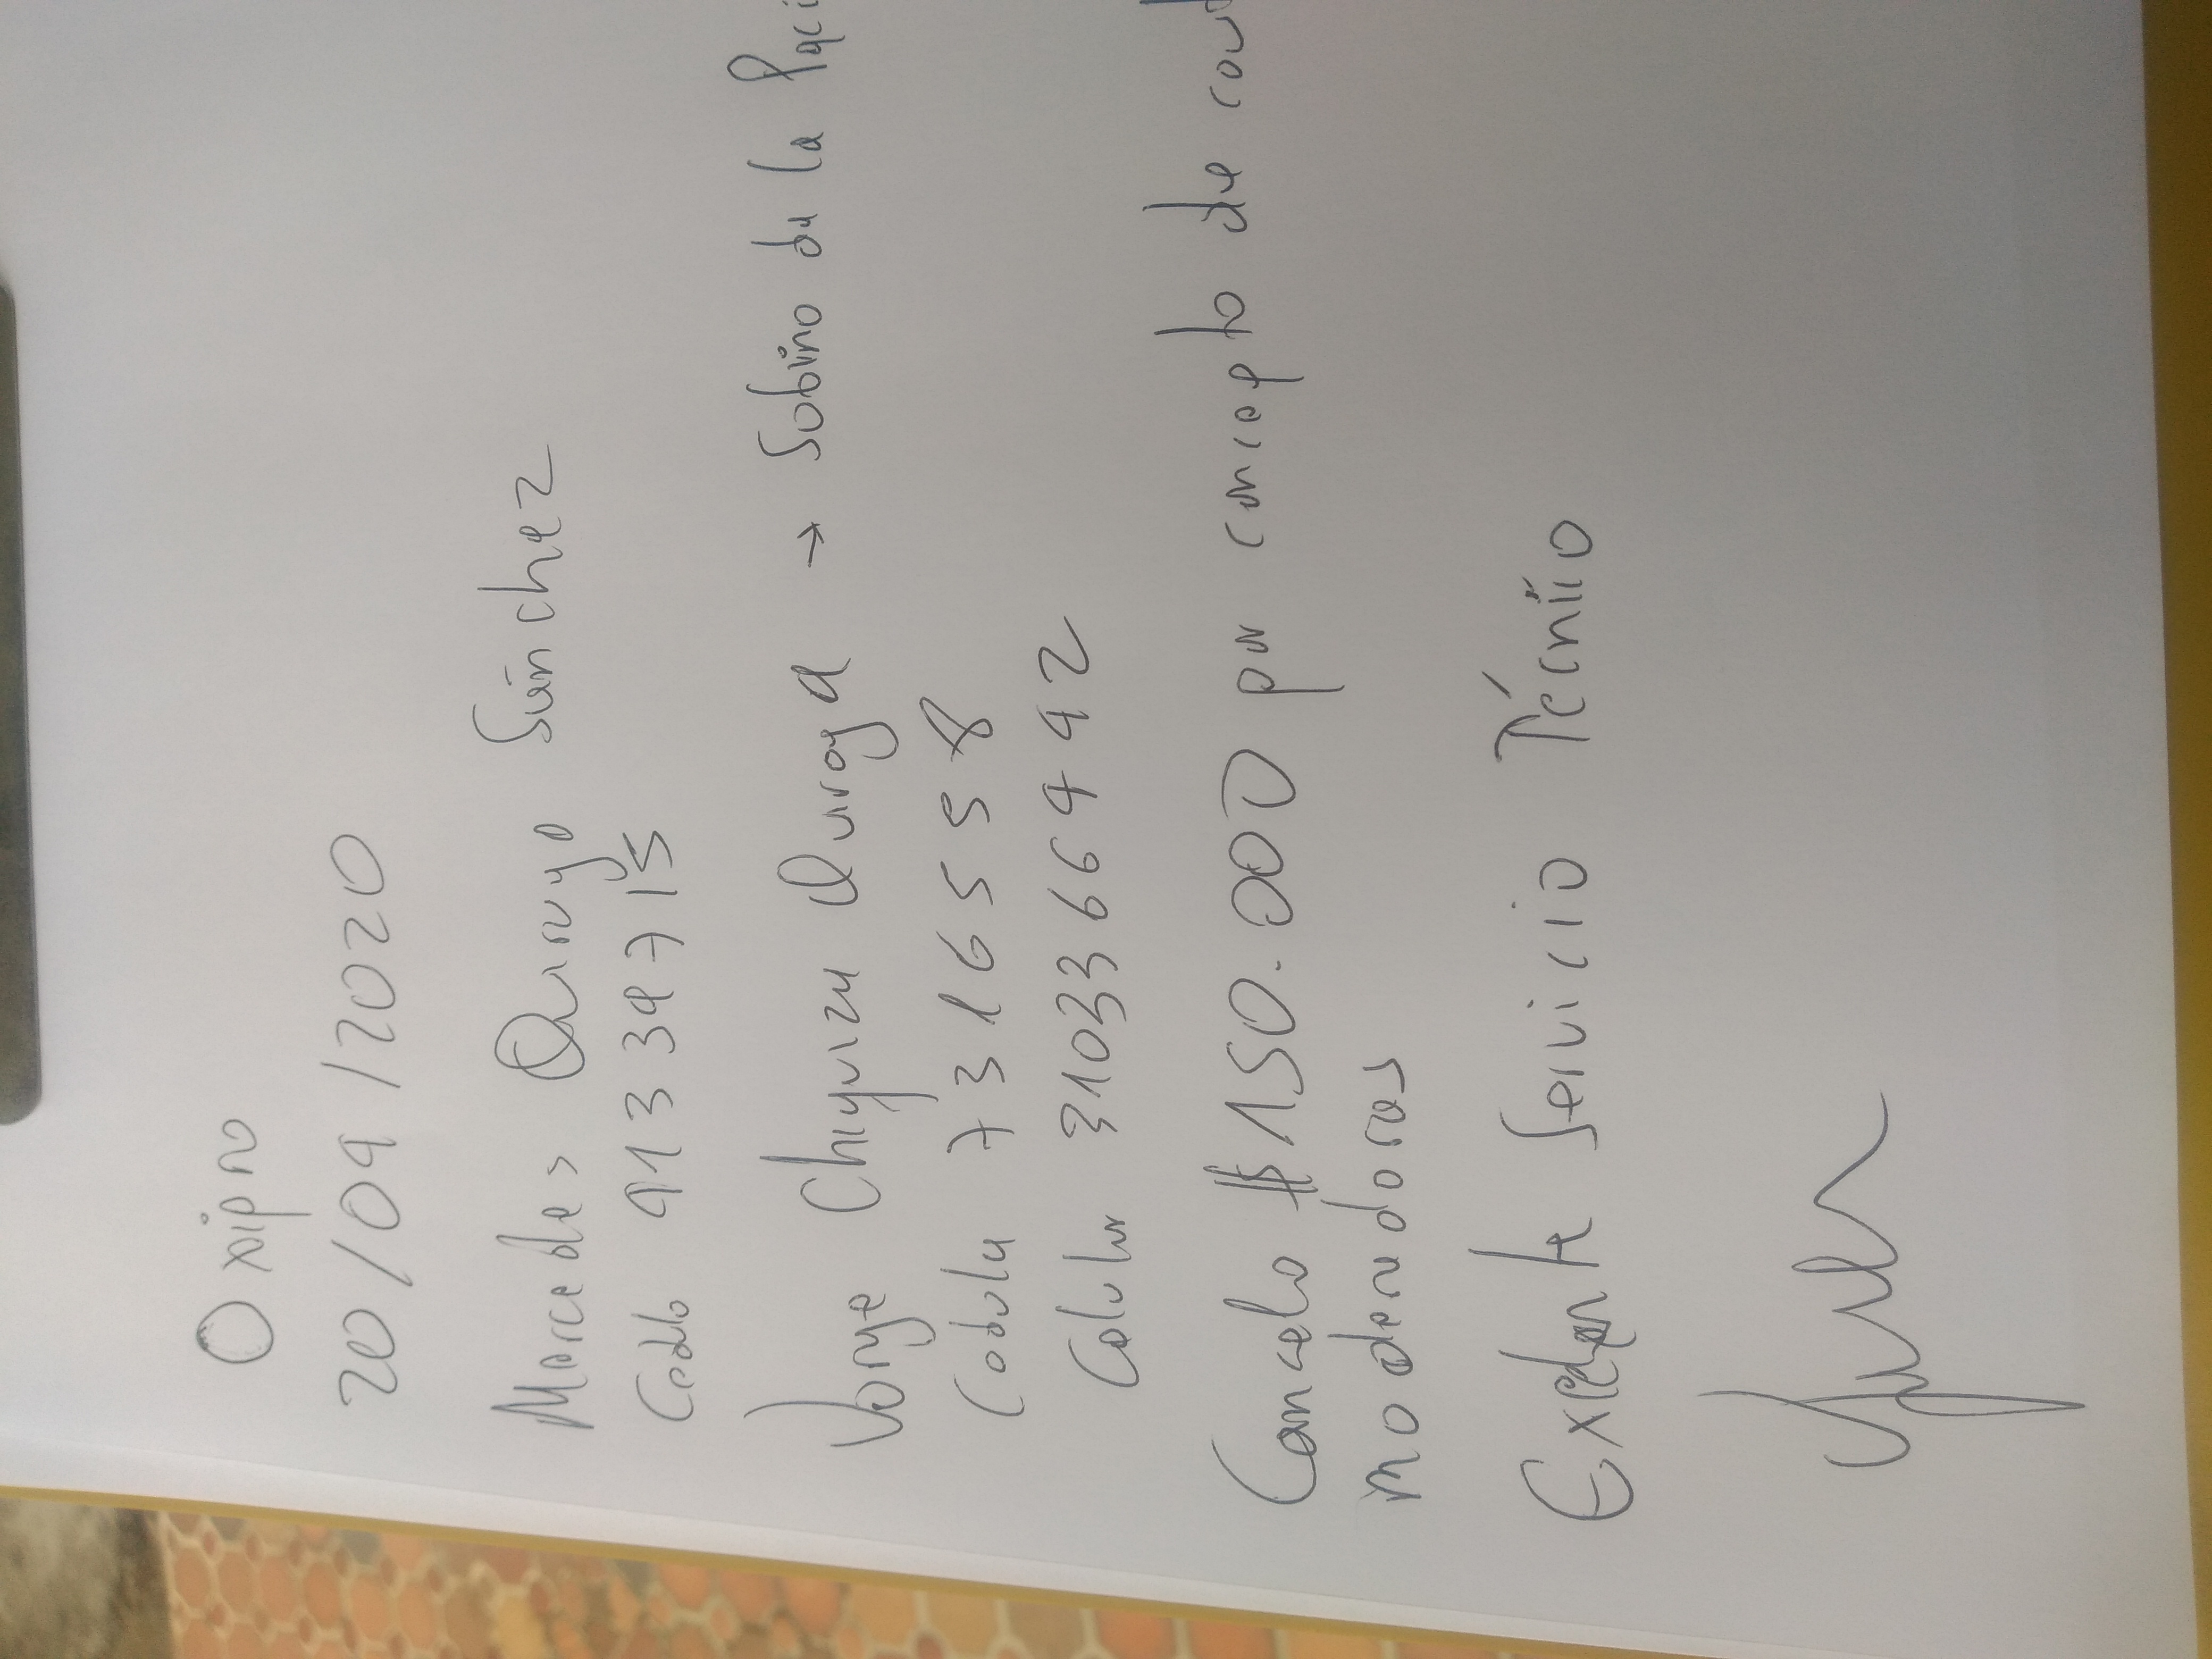 Oxipro
20/09/2020
Mercedes Quiroga Sánchez
Cedula 41339715
Jorge Chiquiza Quiroga → Sobrino de la Paci
Cedula 7316558
Celular 3103366442
Cancelo $150.000 por concepto de cout
moderadoras
Exelente Servicio Técnico